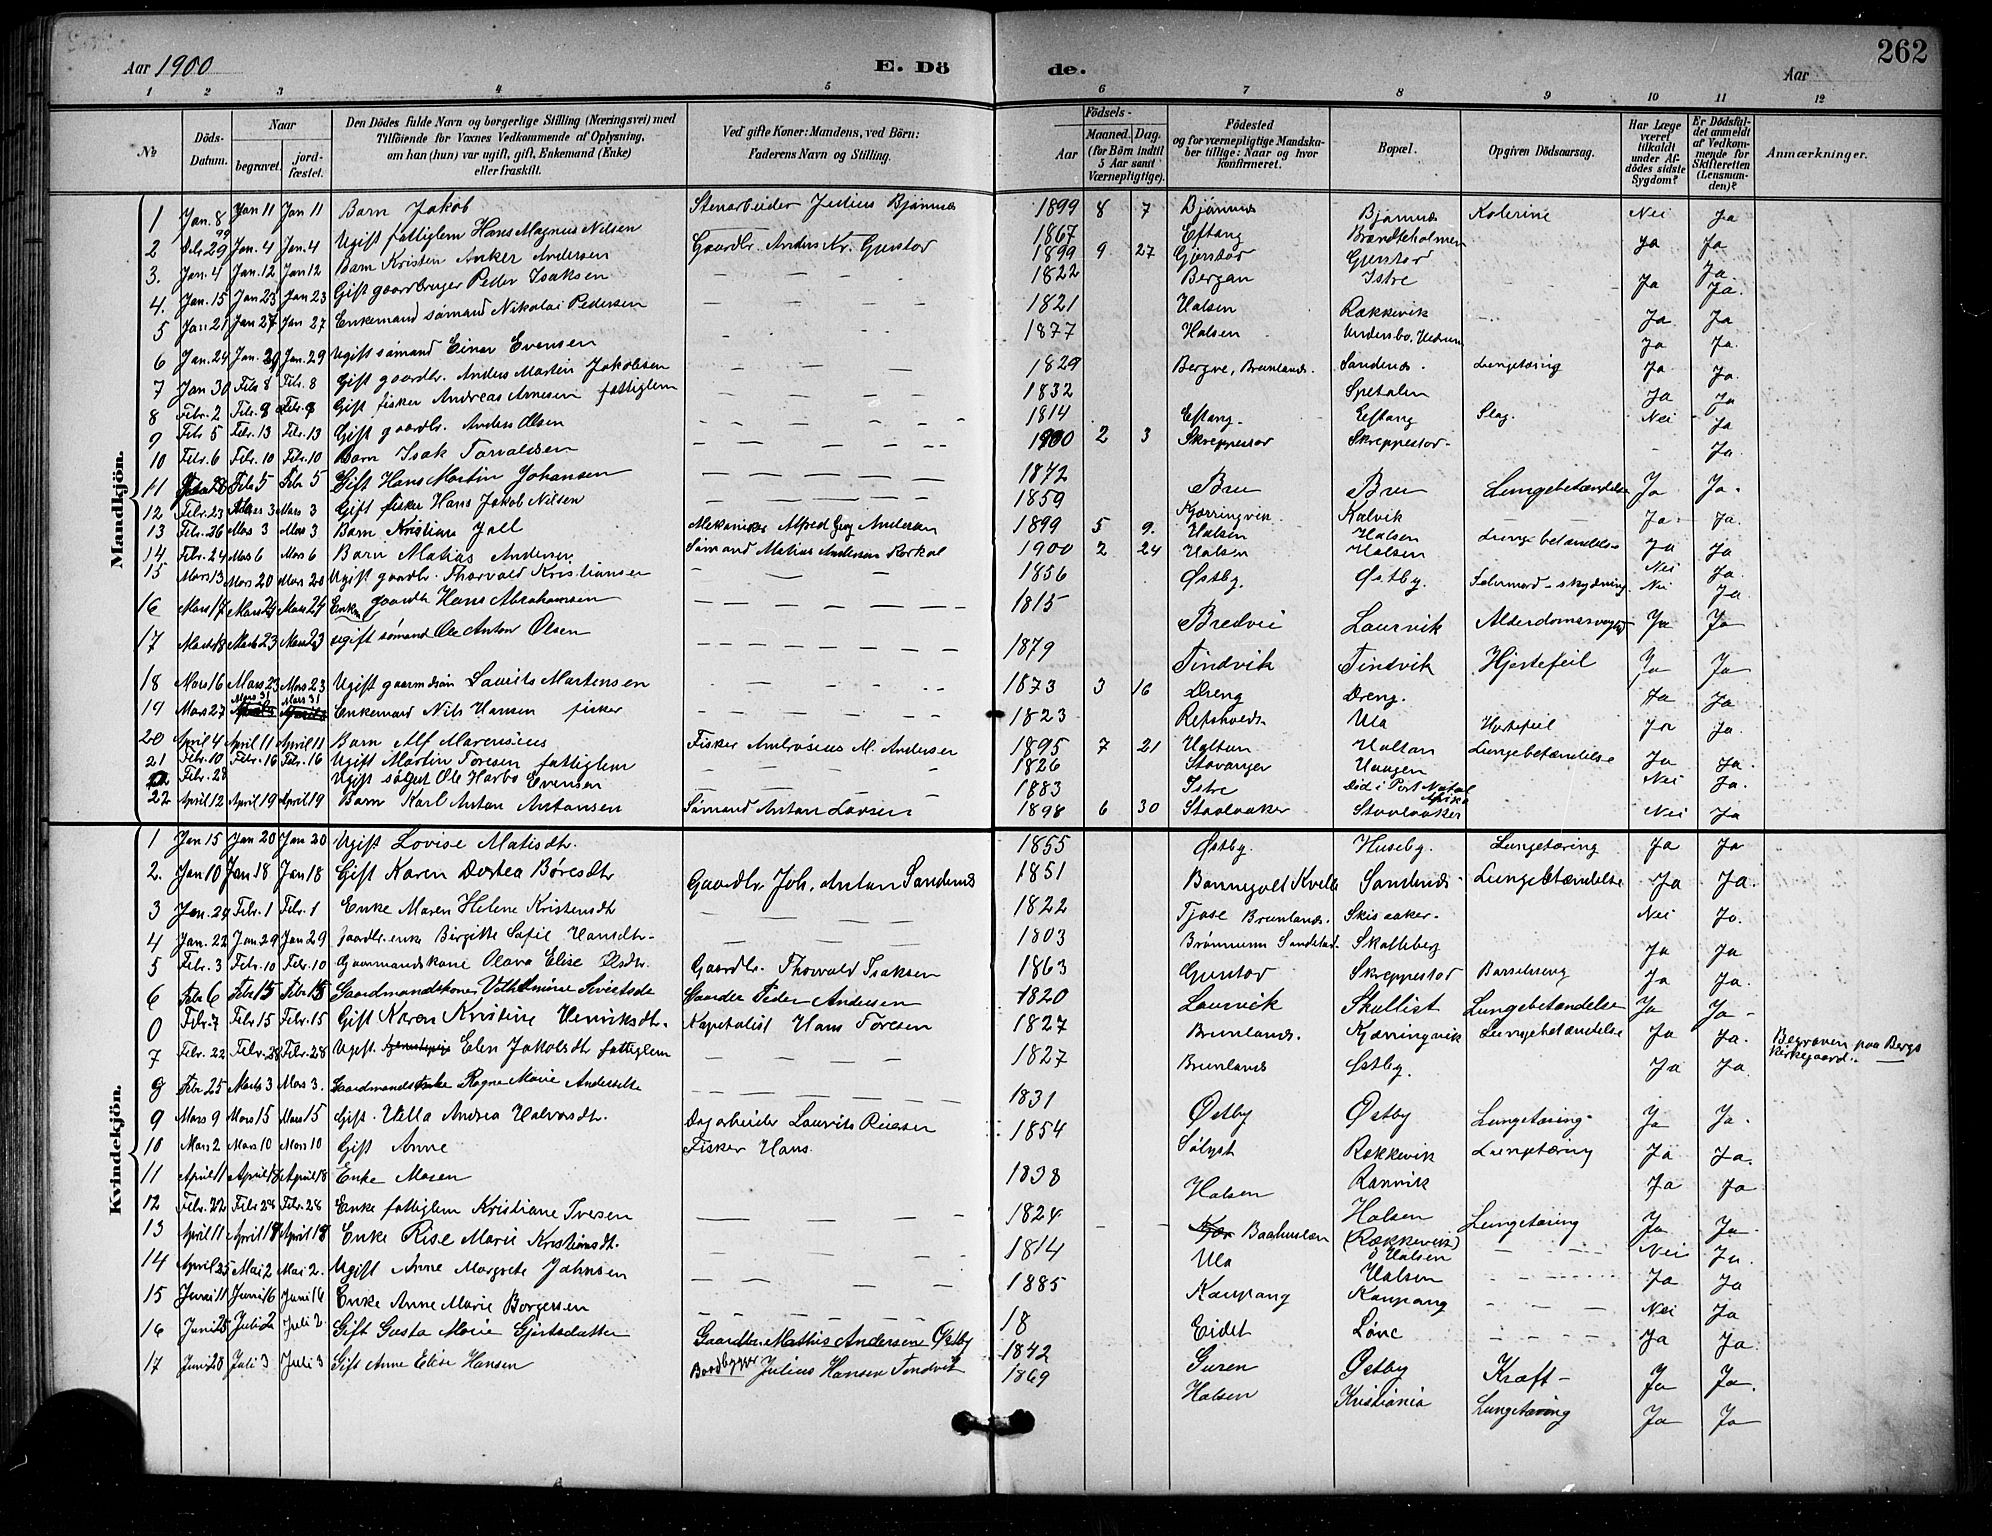 262
Aar 1900
E. Dö
de.
Aar
1 2 3 4 5 6 7 8 9 10 11 12
No
Döds-Datum.
Naar
begravet
jordfæstet.
Den Dödes fulde Navn og borgerlige Stilling (Næringsvei) med
Tilföiende for Voxnes Vedkommende af Oplysning,
om han (hun) var ugift, gift, Enkemand (Enke)
eller fraskilt.
Ved gifte Koner: Mandens, ved Börn:
Faderens Navn og Stilling.
Födsels-
Aar
Maaned. Dag.
(for Börn indtil
5 Aar samt
Værnepligtige).
Födested
og for værnepligtige Mandska-
ber tillige: Naar og hvor
konfirmeret.
Bopæl.
Opgiven Dödsaarsag.
Har Læge
været
tilkaldt
under Af-
dödes sidste
Sygdom?
Er Dödsfal-
det anmeldt
af Vedkom-
mende for
Skifteretten
(Lensman-
den)?
Anmærkninger.
Mandkjön.
1 Jan. 8 Jan 11 Jan 11 Barn Jakob Stenarbeider Julius Bjønnes 1899 8 7 Bjønnes Bjønnes Kolerine Nei Ja
2 Dcbr 29 99 Jan. 4 Jan. 4 Ugift fattiglem Hans Magnus Nilsen 1867 Eftang Brandtholmen Ja Ja
3. Jan. 4 Jan. 12 Jan 12 Barn Kristen Anker Andersen Gaardbr. Anders Kr. Gjerstod 1899 9 27 Gjerstød Gjerstød Ja
4. Jan. 15 Jan 23 Jan 23 Gift gaardbruger Peder Isaksen 1822 Bergan Istre Ja Ja.
5 Jan 21 Jan 27 Jan 27 Enkemand sømand Nikolai Pedersen 1821 Halsen Rækkevik Ja Ja
6 Jan. 24 Jan. 29 Jan. 29 Ugift sømand Einar Evensen 1877 Halsen Undersbo, Hedrum Ja Ja.
7 Jan 30 Febr 8 Febr. 8 Gift gaardbr. Anders Martin Jakobsen 1829 Bergve, Brunlanæs. Sandenæs. Lungetæring Ja Ja.
8 Febr. 2 Febr. 8 Febr. 8 Gift fisker Andreas Arnesen fattiglem 1832 Spetalen Ja Ja
9 Febr 5 Febr. 13 Febr. 13 Gift gaardbr. Anders Olsen 1814 Eftang. Eftang Slag. Nei Ja
10 Febr. 6 Febr. 10 Febr. 10 Barn Isak Torvaldsen 1900 2 3 Skreppestod Skreppestod Ja.
11 Febr 5 Febr 5 Gift Hans Martin Johansen 1872 Bru Bru Lungebetændelse Ja Ja.
12 Febr. 23 Mars 3 Mars 3 Gift fisker Hans Jakob Nilsen 1859 Kjærringvik. Kalvik Ja Ja.
13 Febr. 26 Mars 3 Mars 3 Barn Kristian Joll Mekaniker Alfred Andersen 1899 5 9. Halsen Halsen Lungebetændelse Ja Ja
14 Febr. 24 Mars 6 Mars 6 Barn Matias Andersen Sømand Matias Andersen 1900 2 24 Halsen Halsen Nei Ja.
15 Mars 13 Mars 20 Mars 20 Ugift gaardbr. Thorvald Kristiansen 1856 Østby. Østby. Selvmord-skydning Nei Ja
16 Mars 17 Mars 24 Mars 24 Enke gaardbr Hans Abrahamsen 1815 Bredvei Laurvik Alderdomssvaghed Ja Ja
17 Mars 18 Mars 23 Mars 23 ugift sømand Ole Anton Olsen 1879 Tindvik Tindvik Hjertefeil Ja Ja
18 Mars 16 Mars 23 Mars 23 Ugift gaardmsøn Laurits Martensen 1873 3 16 Dreng Dreng. Ja Ja
19 Mars 27 Mars 31 Mars 31 Enkemand Nils Hansen fisker 1823 Refsholdt Ula Hjertefeil Ja Ja.
20 April 4 April 11 April 11 Barn Alf Marensius Fisker Ambrosius M. Andersen 1895 7 21 Holtan Holtan Lungebetændelse Ja Ja.
21 Febr. 10 Febr. 16 Febr. 16 Ugift Martin Toresen fattiglem 1826 Stavanger Haugen Nei Ja.
0 Febr. 28 Ugift søgut Ole Harbo Evensen 1883 Istre død i Port Natal Afrika
22 April 12 April 19 April 19 Barn Karl Anton Antonsen Sømand Anton Larsen 1898 6 30 Stavlaaker Stavlaaker Nei Ja
Kvindekjön.
1 Jan 15 Jan 20 Jan 20 Ugift Lovise Matisdtr. 1855 Østby. Huseby. Lungetæring Ja Ja
2. Jan 10 Jan 18 Jan 18 Gift Karen Dortea Børesdtr Gaardbr. Joh. Anton Sandenæs 1851 Bonnegolt Kvelle Sandenæs Lungebetændelse Ja Ja.
3 Jan. 24 Febr. 1 Febr. 1 Enke Maren Helene Kristensdtr 1822 Tjose Brunlanæs. Skisaaker. Nei Ja.
4 Jan. 22 Jan 29 Jan 29 gaardbr. enke Birgitte Sofie Hansdtr. 1803 Brønnum Sandstad. Skalleberg Ja Ja
5 Febr. 3 Febr. 10 Febr. 10 Gaardmandskone Olava Elise Olsdtr. Gaardbr. Thorvald Isaksen 1863 Gjerstod Skreppestod Barselseng Ja Ja.
6 Febr 6 Febr 15 Febr 15 Gaardmandskone Vilhelmine Gaardbr Peder Andersen 1820 Laurvik Skallist Lungebetændelse Ja Ja
0 Febr. 7 Febr. 15 Febr. 15 Gift Karen Kristine Henriksdtr. Kapitalist Hans Toresen 1827 Brunlanæs. Kjærringvik Lungebetændelse Ja Ja. Begraven paa Bergs Kirkegaard.
7 Febr. 22 Febr. 28 Febr. 28 Ugift. Elen Jakobsdtr fattiglem 1827 Brunlanæs Østby. Ja Ja.
8 Febr. 25 Marts 3 Mars 3. Gaardmandsenke Ragne Marie Andersdtr 1831 Østby Østby Lungetæring Ja Ja.
9 Mars 9 Mars 15 Mars 15 Gift. Helle Andrea Halvorsdtr. Dagarbeider Laurits Riersen 1854 Sølyst Rækkevik Lungetæring Ja Ja.
10 Mars 2 Mars 10 Mars 10 Gift Anne Fisker Hans
11 April 11 April 18 April 18 Enke Maren 1838 Halsen Ranvik Ja Ja
12 Febr. 22 Febr 28 Febr. 28 Enke fattiglem Kristiane Iversen 1824 Baahuslæn Halsen (Rækkevik) Lungetæring Ja Ja
13 April 11 April 18 April 18 Enke Rise Marie Kristiansdtr. 1814 Ula Halsen Nei Ja.
14 April 25 Mai 2 Mai 2. Ugift Anne Margrete Johnsen 1885 Kaupang Halsen Kaupang Ja Ja
15 Juni 11 Juni 16 Juni 16 Enke Anne Marie Borgersen 18 Eidet Løve Nei Ja
16 Juni 25 Juli 2 Juli 2. Gift Gusta Marie Ejertsdatter Gaardbr. Mathis Andersen Østby 1842 Guren Østby Kræft Ja Ja
17 Juni 28 Juli 3 Juli 3 Gift Anne Elise Hansen Baadbygger Julius Hansen Tindvik 1869 Halsen Kristiania Lungetæring Ja Ja